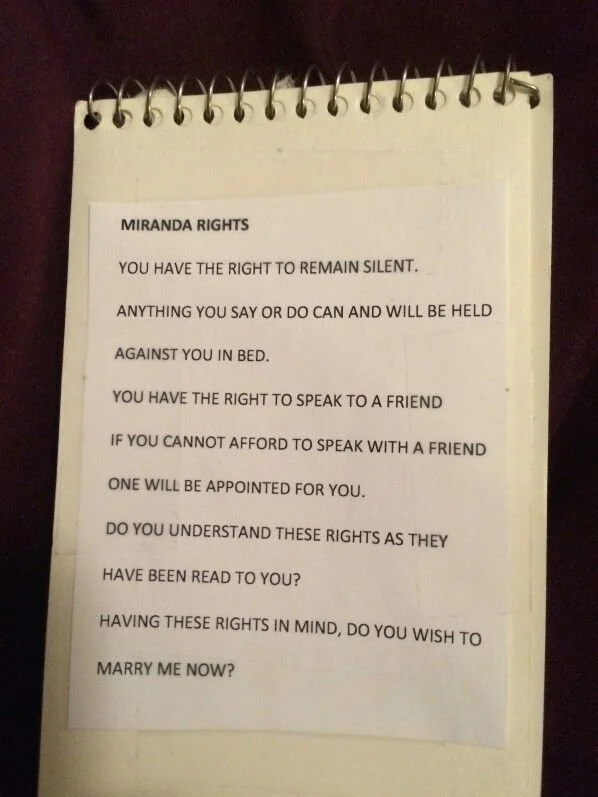 MIRANDA RIGHTS
YOU HAVE THE RIGHT TO REMAIN SILENT.
ANYTHING YOU SAY OR DO CAN AND WILL BE HELD
AGAINST YOU IN BED.
YOU HAVE THE RIGHT TO SPEAK TO A FRIEND
IF YOU CANNOT AFFORD TO SPEAK WITH A FRIEND
ONE WILL BE APPOINTED FOR YOU.
DO YOU UNDERSTAND THESE RIGHTS AS THEY
HAVE BEEN READ TO YOU?
HAVING THESE RIGHTS IN MIND, DO YOU WISH TO
MARRY ME NOW?